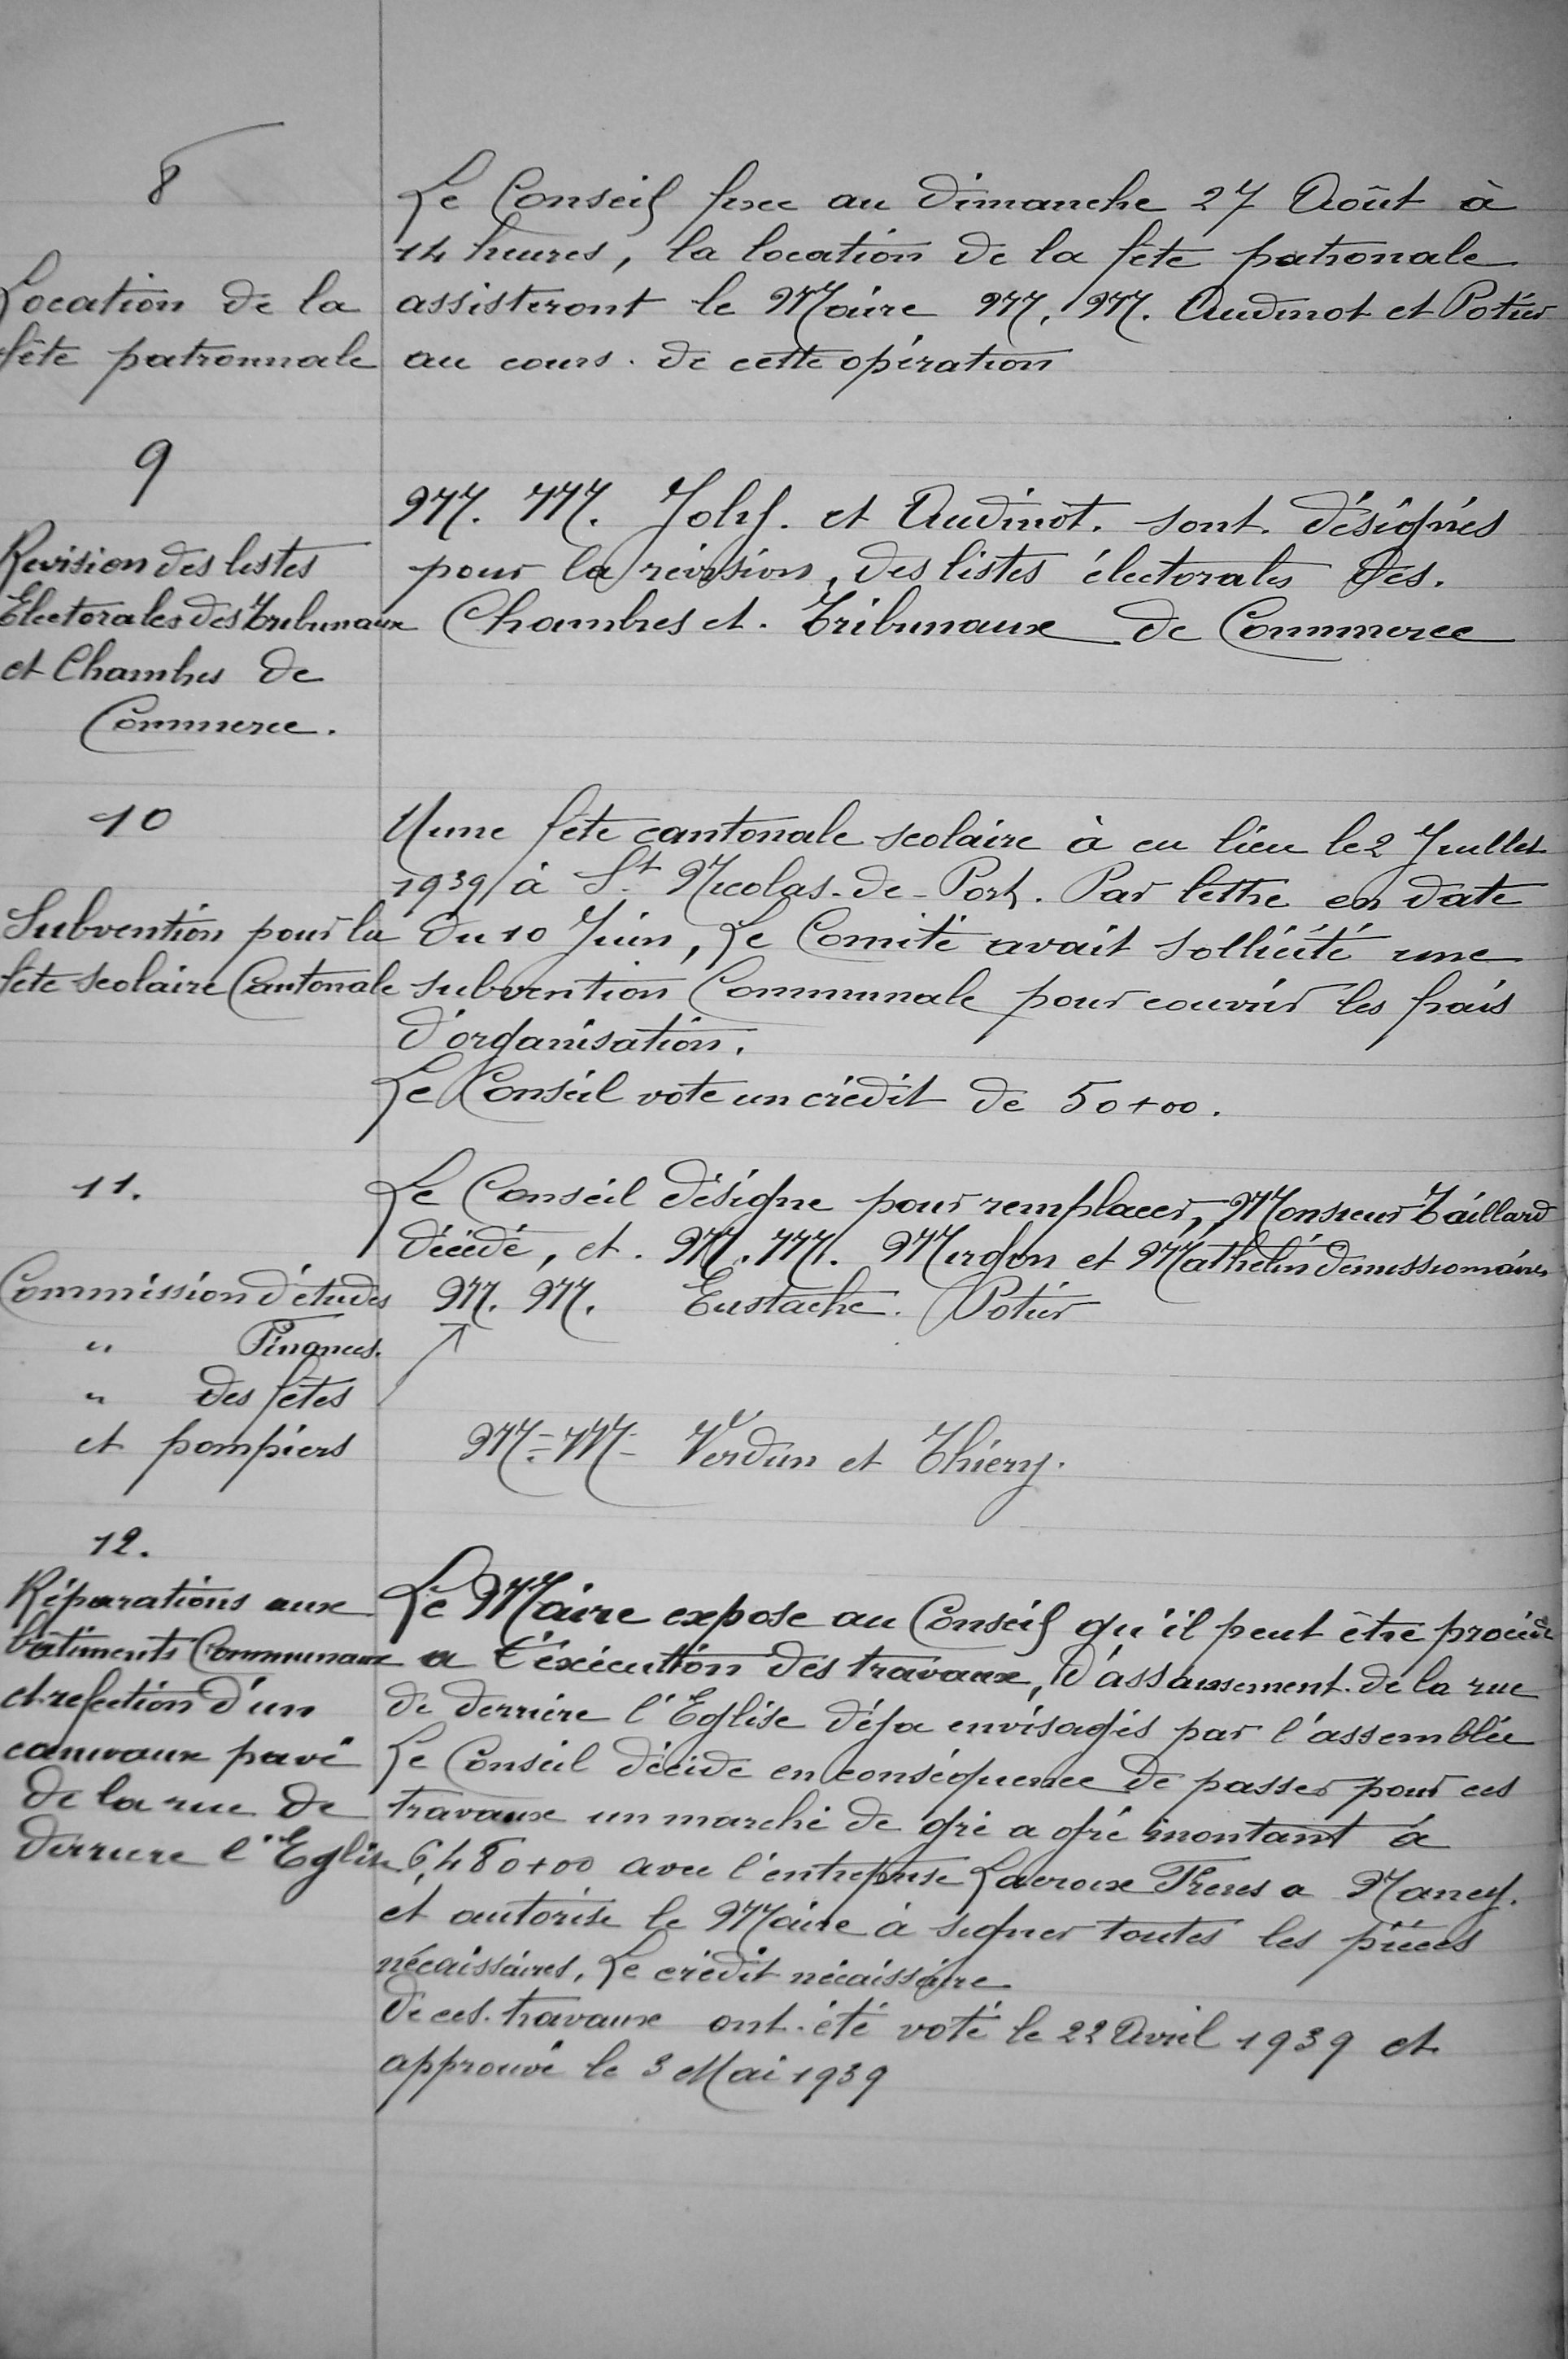 8
Location de la
fête patronnale
Le Conseil fixe au Dimanche 27 Août à
14 heures, la location de la fête patronale
assisteront le Maire M. M. Audinot et Potier
au cours de cette opération
9
Revision des listes
Electorales des Tribunaux
et Chambres de
Commerce.
M. M. Joly. et Audinot. sont désignés
pour la révision, des listes électorales des.
Chambres et. Tribunaux de Commerce
10
Subvention pour la
fête scolaire Cantonale
Une fête cantonale scolaire à eu lieu le 2 Juillet
1939 à St Nicolas-de-Port. Par lettre en date
du 10 Juin, Le Comité avait sollicité une
subvention Communale pour couvrir les frais
d'organisation.
Le Conseil vote un crédit de 50+00.
11.
Commission d'études
" Finances.
" des fêtes
et pompiers
Le Conseil désigne pour remplacer, Monsieur Taillard
décédé, et. M. M. et Mathelin démissionnaires
M. M. Eustache. Potier
M. M Verdun et Thiery.
12.
Réparations aux
bâtiments Communaux
et refection d'un
caniveaux pavé
de la rue de
derriere l'Eglise
Le Maire expose au Conseil qu'il peut être procédé
a l'éxécution des travaux, d'assainissement de la rue
de derriere l'Eglise déja envisagés par l'assemblée
Le Conseil décide en conséquence de passer pour ces
travaux un marché de gré a gré montant à
6,480+00 avec l'entreprise Lacroix Freres a Nancy.
et autorise le Maire à signer toutes les pièces
nécaissaires, Le crédit nécaissaire
de ces travaux ont été voté le 22 Avril 1939 et
approuvé le 3 Mai 1939